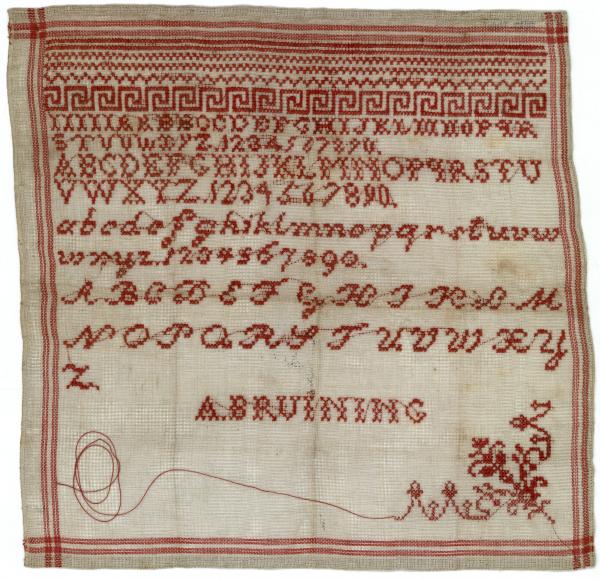 STUVWXYZ.1234567890.
ABCDEFGHIJKLMNOPQRSTU
VWXYZ.1234567890.
abcdefghiklmnopqrstuvw
wxyz.1234567890.
ABCDEFGHIKLM
NOPQRSTUVWXY
Z.
A.BRUINING